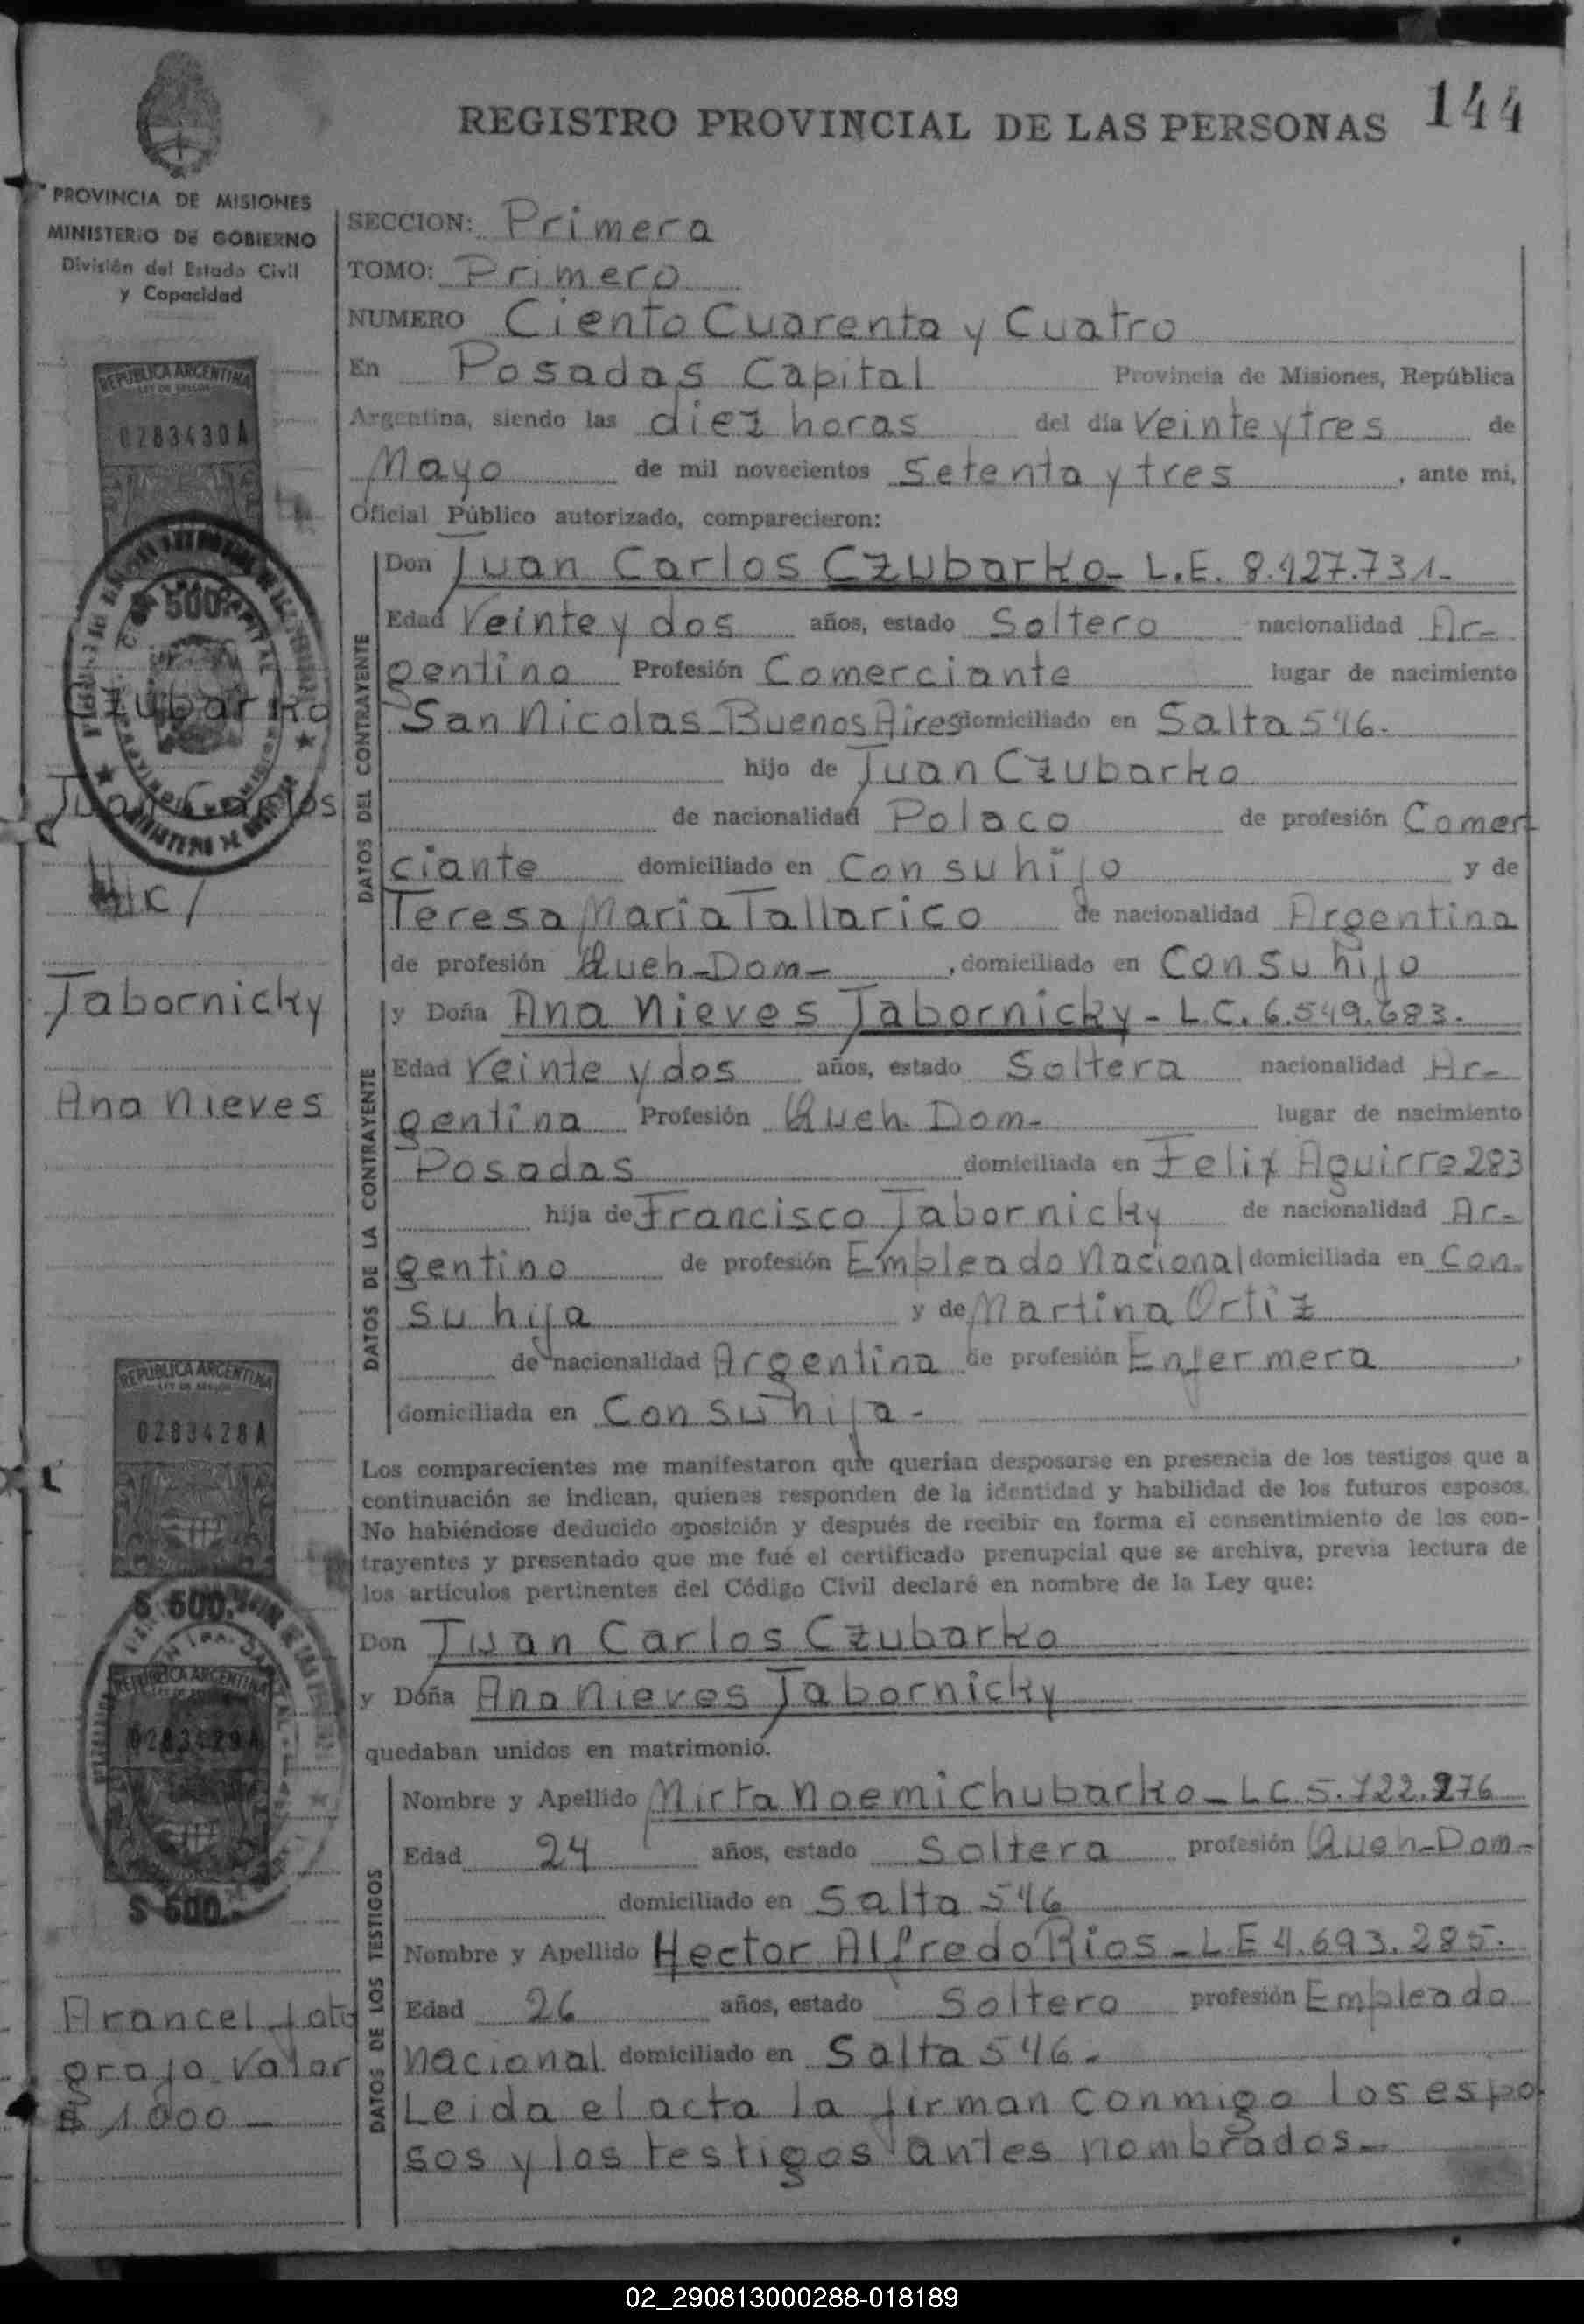 REGISTRO PROVINCIAL DE LAS PERSONAS 144
PROVINCIA DE MISIONES
MINISTERIO DE GOBIERNO
División del Estado Civil
y Capacidad
SECCION: Primera
TOMO: Primero
NUMERO Ciento Cuarenta y Cuatro
En Posadas Capital Provincia de Misiones, República
Argentina, siendo las diez horas del día Veinte y tres de
Mayo de mil novecientos Setenta y tres, ante mi,
Oficial Público autorizado, comparecieron:
REPUBLICA ARGENTINA
LEY DE SELLOS
0283430A
$ 500.-
Czubarko
Juan Carlos
c/
Tabornicky
Ana Nieves
DATOS DEL CONTRAYENTE
Don Juan Carlos Czubarko- L.E. 8.127.731-
Edad Veinte y dos años, estado Soltero nacionalidad Ar-
gentino Profesión Comerciante lugar de nacimiento
San Nicolas-Buenos Aires domiciliado en Salta 546.
hijo de Juan Czubarko
de nacionalidad Polaco de profesión Comer
ciante domiciliado en Con su hijo y de
Teresa Maria Tallarico de nacionalidad Argentina
de profesión Queh-Dom-, domiciliado en Con su hijo
DATOS DE LA CONTRAYENTE
y Doña Ana Nieves Tabornicky- L.C. 6.549.683.
Edad Veinte y dos años, estado Soltera nacionalidad Ar-
gentina Profesión Queh. Dom- lugar de nacimiento
Posadas domiciliada en Felix Aguirre 283
hija de Francisco Tabornicky de nacionalidad Ar-
gentino de profesión Empleado Nacional domiciliada en Con-
su hija y de Martina Ortiz
de nacionalidad Argentina de profesión Enfermera,
domiciliada en Con su hija-
REPUBLICA ARGENTINA
LEY DE SELLOS
0283428A
$ 500.-
Los comparecientes me manifestaron que querían desposarse en presencia de los testigos que a
continuación se indican, quienes responden de la identidad y habilidad de los futuros esposos.
No habiéndose deducido oposición y después de recibir en forma el consentimiento de los con-
trayentes y presentado que me fué el certificado prenupcial que se archiva, previa lectura de
los artículos pertinentes del Código Civil declaré en nombre de la Ley que:
Don Juan Carlos Czubarko
y Doña Ana Nieves Tabornicky
quedaban unidos en matrimonio.
REPUBLICA ARGENTINA
0283429A
$ 500.-
DATOS DE LOS TESTIGOS
Nombre y Apellido Mirta Noemi Chubarko- LC 5.722.276
Edad 24 años, estado Soltera profesión Queh-Dom-
domiciliado en Salta 546
Nombre y Apellido Hector Alfredo Rios- LE 4.693.285.
Edad 26 años, estado Soltero profesión Empleado
Nacional domiciliado en Salta 546.
Leida el acta la firman conmigo los espo
sos y los testigos antes nombrados-
Arancel foto
grafo Valor
$ 1.000-
02_290813000288-018189